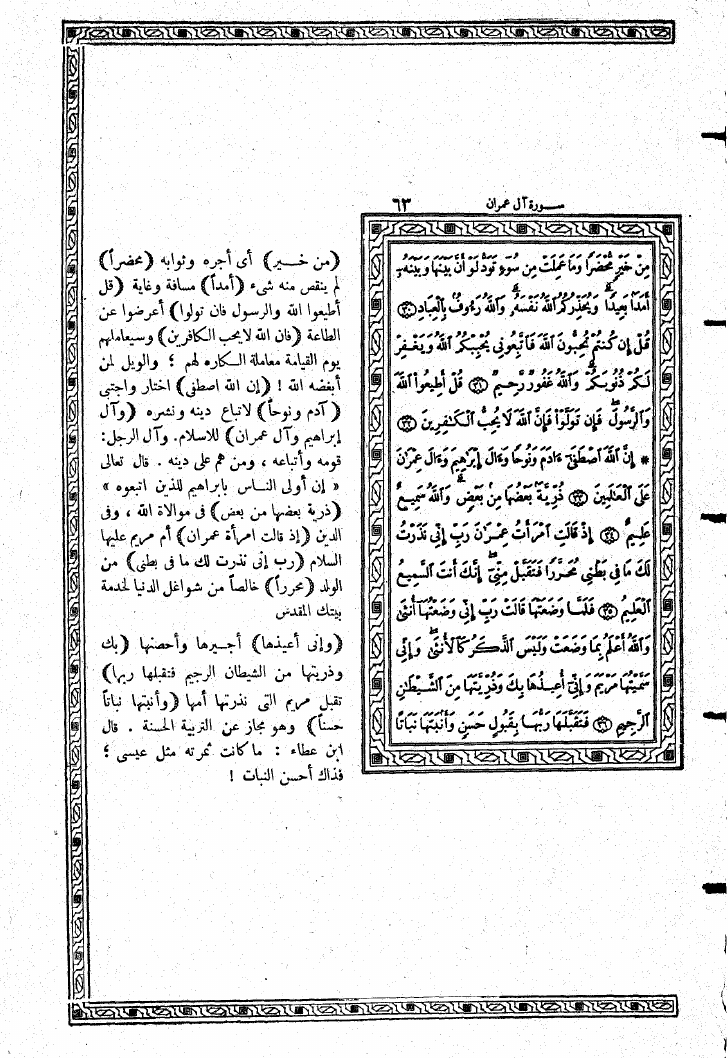 سورة آل عمران ٦٣
مِنْ خَيْرٍ مُّحْضَرًا وَمَا عَمِلَتْ مِن سُوٓءٍ تَوَدُّ لَوْ أَنَّ بَيْنَهَا وَبَيْنَهُۥٓ
أَمَدًۢا بَعِيدًا ۗ وَيُحَذِّرُكُمُ ٱللَّهُ نَفْسَهُۥ ۗ وَٱللَّهُ رَءُوفٌۢ بِٱلْعِبَادِ ٣٠
قُلْ إِن كُنتُمْ تُحِبُّونَ ٱللَّهَ فَٱتَّبِعُونِى يُحْبِبْكُمُ ٱللَّهُ وَيَغْفِرْ
لَكُمْ ذُنُوبَكُمْ ۗ وَٱللَّهُ غَفُورٌ رَّحِيمٌ ٣١ قُلْ أَطِيعُوا۟ ٱللَّهَ
وَٱلرَّسُولَ ۖ فَإِن تَوَلَّوْا۟ فَإِنَّ ٱللَّهَ لَا يُحِبُّ ٱلْكَٰفِرِينَ ٣٢
* إِنَّ ٱللَّهَ ٱصْطَفَىٰٓ ءَادَمَ وَنُوحًا وَءَالَ إِبْرَٰهِيمَ وَءَالَ عِمْرَٰنَ
عَلَى ٱلْعَٰلَمِينَ ٣٣ ذُرِّيَّةًۢ بَعْضُهَا مِنۢ بَعْضٍ ۗ وَٱللَّهُ سَمِيعٌ
عَلِيمٌ ٣٤ إِذْ قَالَتِ ٱمْرَأَتُ عِمْرَٰنَ رَبِّ إِنِّى نَذَرْتُ
لَكَ مَا فِى بَطْنِى مُحَرَّرًا فَتَقَبَّلْ مِنِّىٓ ۖ إِنَّكَ أَنتَ ٱلسَّمِيعُ
ٱلْعَلِيمُ ٣٥ فَلَمَّا وَضَعَتْهَا قَالَتْ رَبِّ إِنِّى وَضَعْتُهَآ أُنثَىٰ
وَٱللَّهُ أَعْلَمُ بِمَا وَضَعَتْ وَلَيْسَ ٱلذَّكَرُ كَٱلْأُنثَىٰ ۖ وَإِنِّى
سَمَّيْتُهَا مَرْيَمَ وَإِنِّىٓ أُعِيذُهَا بِكَ وَذُرِّيَّتَهَا مِنَ ٱلشَّيْطَٰنِ
ٱلرَّجِيمِ ٣٦ فَتَقَبَّلَهَا رَبُّهَا بِقَبُولٍ حَسَنٍ وَأَنۢبَتَهَا نَبَاتًا
(من خير) أى أجره وثوابه (محضراً)
لم ينقص منه شىء (أمداً) مسافة وغاية (قل
أطيعوا الله والرسول فان تولوا) أعرضوا عن
الطاعة (فان الله لايحب الكافرين) وسيعاملهم
يوم القيامة معاملة الكاره لهم ؛ والويل لمن
أبغضه الله ! (إن الله اصطفى) اختار واجتبى
(آدم ونوحاً) لاتباع دينه ونشره (وآل
إبراهيم وآل عمران) للاسلام. وآل الرجل:
قومه وأتباعه ، ومن هم على دينه . قال تعالى
« إن أولى الناس بابراهيم للذين اتبعوه »
(ذرية بعضها من بعض) فى موالاة الله ، وفى
الدين (إذ قالت امرأة عمران) أم مريم عليها
السلام (رب إنى نذرت لك ما فى بطنى) من
الولد (محرراً) خالصاً من شواغل الدنيا لخدمة
بيتك المقدس
(وإنى أعيذها) أجيرها وأحصنها (بك
وذريتها من الشيطان الرجيم فتقبلها ربها)
تقبل مريم التى نذرتها أمها (وأنبتها نباتاً
حسناً) وهو مجاز عن التربية الحسنة . قال
ابن عطاء : ما كانت ثمرته مثل عيسى ؛
فذاك أحسن النبات !